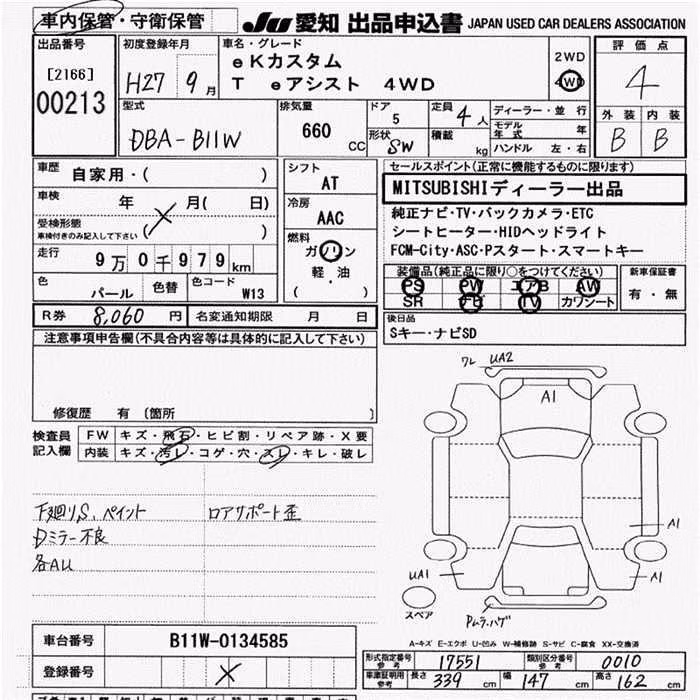 車内保管・守衛保管
JU 愛知 出品申込書 JAPAN USED CAR DEALERS ASSOCIATION
出品番号
[2166]
00213
初度登録年月
H27 9月
車名・グレード
eKカスタム
T eアシスト 4WD
2WD
4WD
評価点
4
外装 内装
B B
型式
DBA-B11W
排気量
660 CC
ドア
5
形状 SW
定員 4人
積載 kg
ディーラー・並行
モデル年式 年
ハンドル 左・右
車歴 自家用・( )
車検 年 月( 日)
受検形態
車検付きのみ記入して下さい ( )
走行 9万0千979km
色 パール 色替 色コード W13
シフト
AT
冷房
AAC
燃料
ガソリン
軽・油
( )
セールスポイント(正常に機能するものに限ります)
MITSUBISHIディーラー出品
純正ナビ・TV・バックカメラ・ETC
シートヒーター・HIDヘッドライト
FCM-City・ASC・Pスタート・スマートキー
装備品(純正品に限り○をつけてください)
PS PW エアB AW
SR ナビ TV カワシート
新車保証書
有・無
R券 8,060円 名変通知期限 月 日
後日品
Sキー・ナビSD
注意事項申告欄(不具合内容等は具体的に記入して下さい)
修復歴 有 (箇所 )
検査員
記入欄
FW キズ・飛石・ヒビ割・リペア跡・X要
内装 キズ・汚レ・コゲ・穴・スレ・キレ・破レ
下廻りS、ペイント ロアサポート歪
Dミラー不良
各AU
ワレ UA2
A1
A1
UA1
A1
スペア
Pムラ・ハゲ
A-キズ E-エクボ U-凹み W-補修跡 S-サビ C-腐食 XX-交換済
車台番号 B11W-0134585
登録番号
形式指定番号 参考 17551 類別区分番号 参考 0010
車庫証明用 参考 長さ 339cm 幅 147cm 高さ 162cm